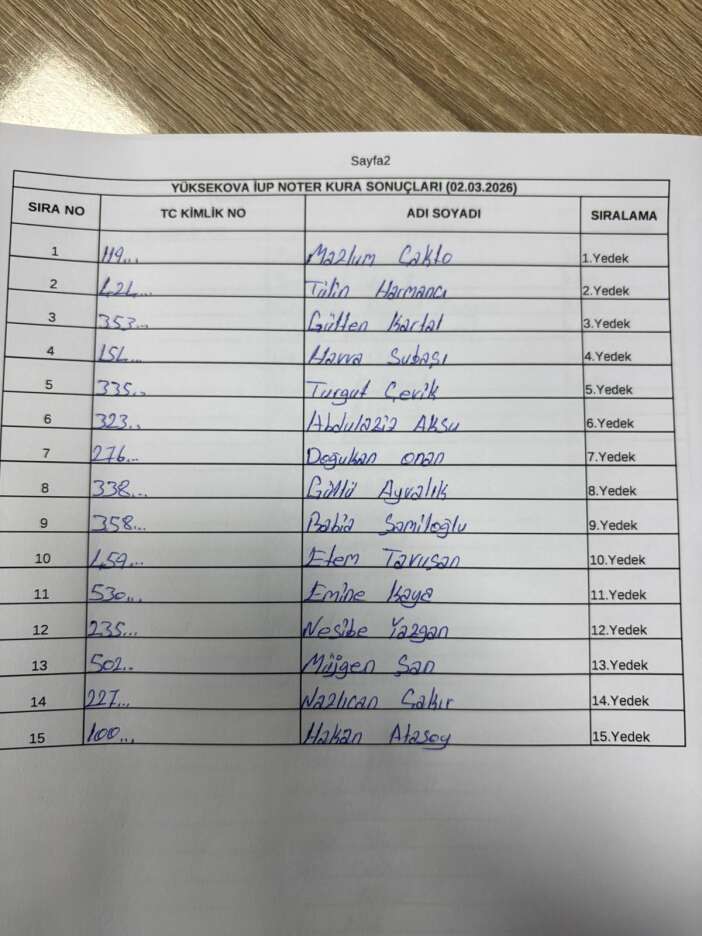 Sayfa2
YÜKSEKOVA İUP NOTER KURA SONUÇLARI (02.03.2026)
SIRA NO TC KİMLİK NO ADI SOYADI SIRALAMA
1 119... Mazlum Çakto 1.Yedek
2 Tülin Harmancı 2.Yedek
3 353... Gülten Kartal 3.Yedek
4 Havva Subaşı 4.Yedek
5 335.. Turgut Çevik 5.Yedek
6 323.. Abdulaziz Aksu 6.Yedek
7 276... Doğukan Onan 7.Yedek
8 338... Güllü Ayvalık 8.Yedek
9 358... Rabia Şamiloğlu 9.Yedek
10 Etem Tavuşan 10.Yedek
11 530... Emine Kaya 11.Yedek
12 235... Nesibe Yazgan 12.Yedek
13 502.. Müjgen Şan 13.Yedek
14 227... Nazlıcan Çakır 14.Yedek
15 100... Hakan Atasoy 15.Yedek